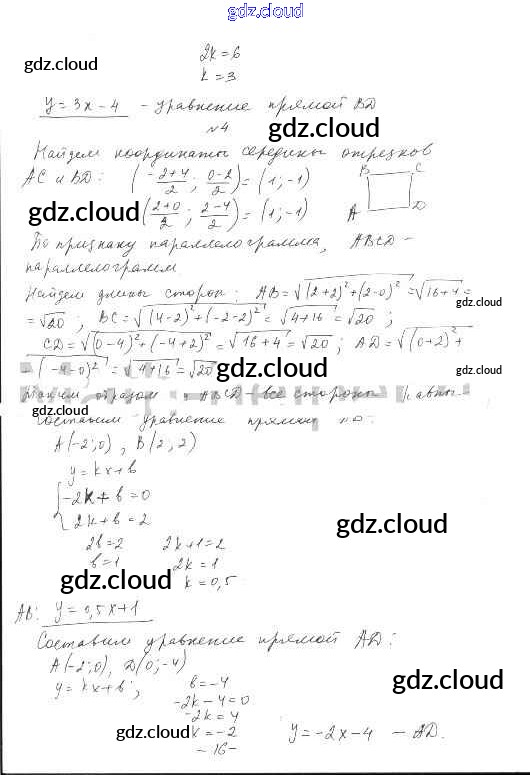 gdz.cloud
2k=6
gdz.cloud
k=3
y=3x-4 - уравнение прямой BD
№4
gdz.cloud
Найдем координаты середины отрезков
AC и BD: (-2+4/2 ; 0-2/2) = (1;-1)
B C
gdz.cloud
(2+0/2 ; 2-4/2) = (1;-1)
gdz.cloud
A D
По признаку параллелограмма, ABCD -
параллелограмм
Найдем длины сторон: AB=√(2+2)²+(2-0)² =√16+4 =
gdz.cloud
=√20 ; BC=√(4-2)²+(-2-2)² =√4+16 =√20 ;
CD=√(0-4)²+(-4+2)² =√16+4 =√20 ; AD=√(0+2)²+
(-4-0)² =√4+16 =√20
gdz.cloud
gdz.cloud
образом ABCD - все стороны равны
gdz.cloud
gdz.cloud
Составим уравнение прямой
A(-2;0), B(2;2)
y=kx+b
{-2k+b=0
2k+b=2
gdz.cloud
2b=2 2k+1=2
b=1 2k=1
gdz.cloud
k=0,5
gdz.cloud
AB: y=0,5x+1
Составим уравнение прямой AD:
A(-2;0), D(0;-4)
y=kx+b; b=-4
gdz.cloud
-2k-4=0
-2k=4
k=-2
gdz.cloud
y=-2x-4 - AD.
gdz.cloud
-16-